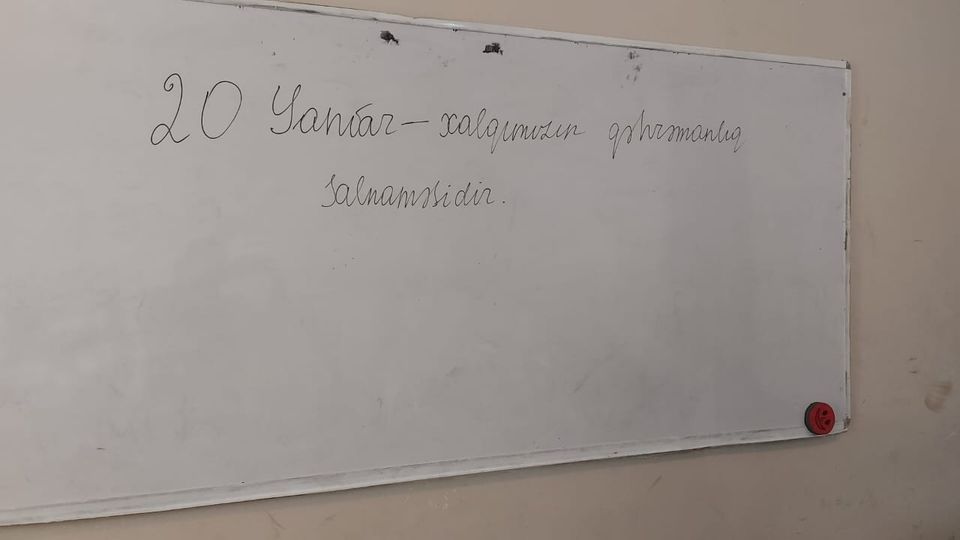 20 Yanvar - xalqımızın qəhrəmanlıq
salnaməsidir.